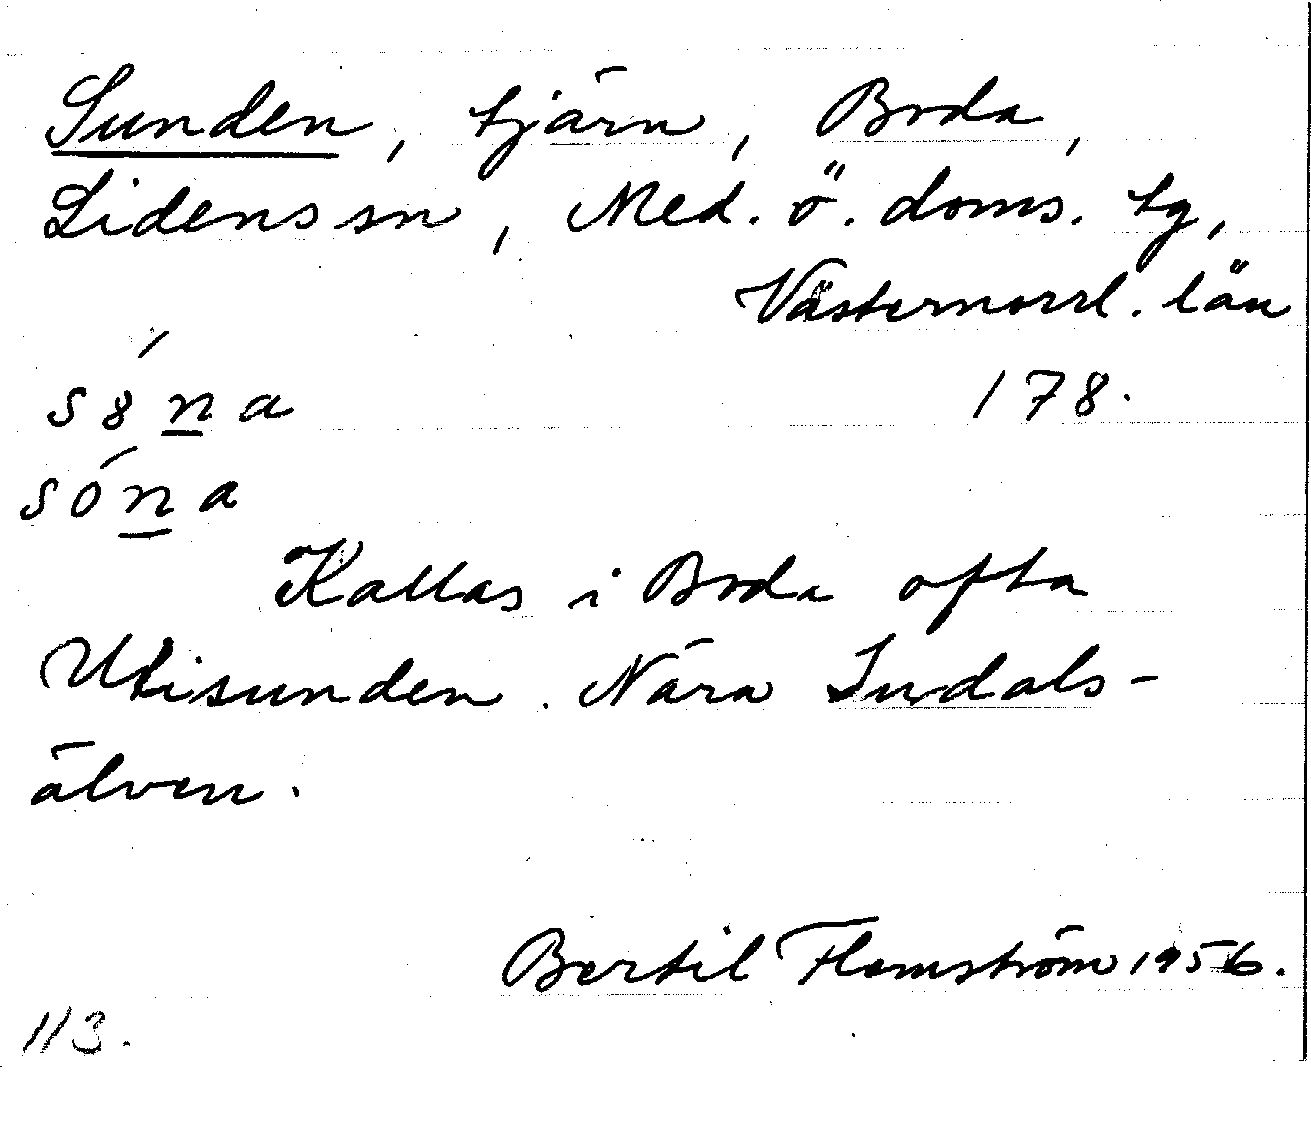 Sunden, tjärn, Boda,
Lidens sn, Med. ö. doms. tg,
Västernorrl. län
s8́na 178.
sóna
Kallas i Boda ofta
Utisunden. Nära Indals-
älven.
Bertil Flemström 1956.
113.